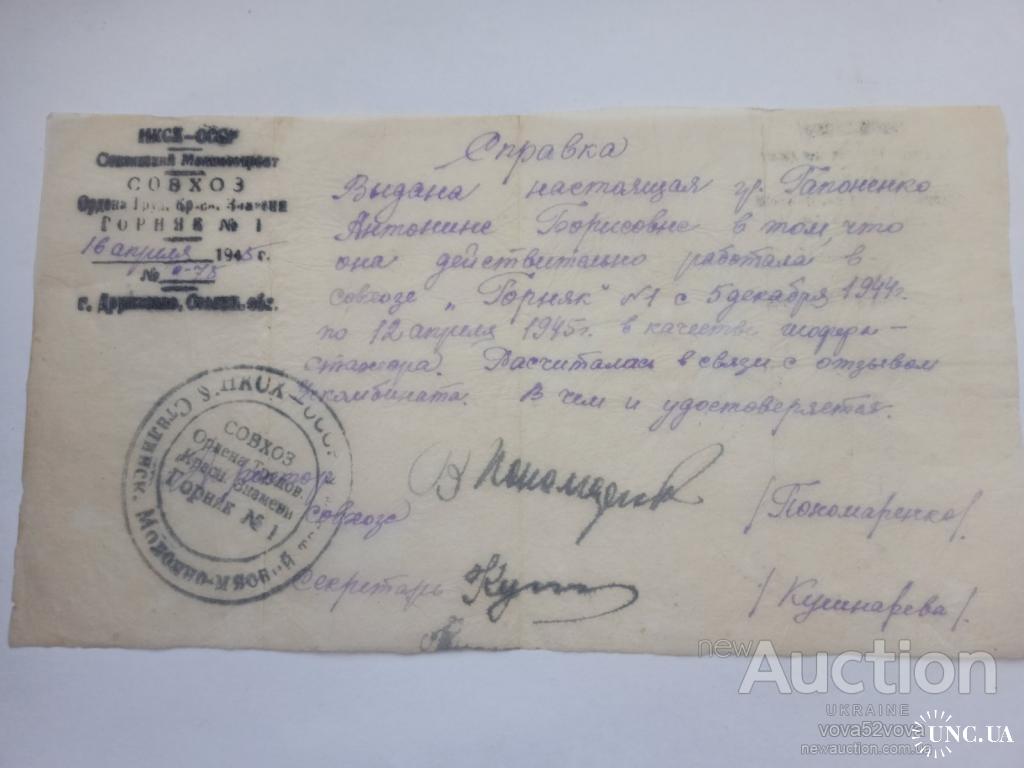 НКСХ-СССР
СОВХОЗ
Ордена Труд. Красн. Знамени
ГОРНЯК № 1
16 апреля 1945 г.
№
г. Дружковка, Сталин. обл.
Справка
Выдана настоящая гр. Гапоненко
Антонине Борисовне в том, что
она действительно работала в
совхозе "Горняк" №1 с 5 декабря 1944г.
по 12 апреля 1945г. в качестве шофера-
стажора. Расчиталась в связи с отзывом
комбината. В чем и удостоверяется.
СОВХОЗ
Ордена Трудов.
Красн. Знамени
Горняк № 1
Директор
совхоза
Пономаренко
/Пономаренко/.
Секретарь
/Кушнарева/.
newAuction
UKRAINE
vova52vova
newauction.com.ua
UNC.UA